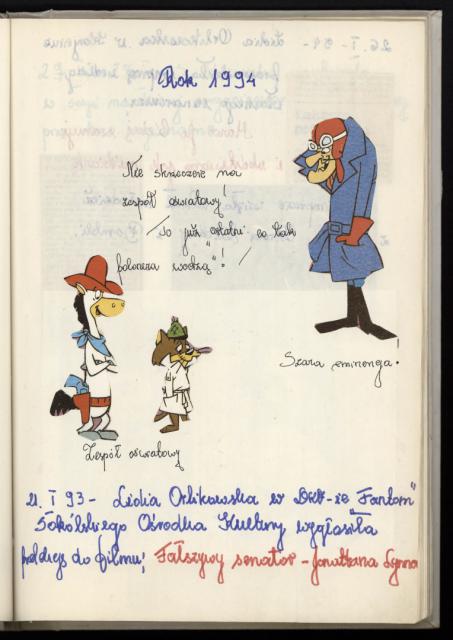 Rok 1994
Nie skrzeczeć na
zespół oświatowy!
/to już ostatni co tak
poloneza wodzą"! /
Szara eminencja!
Zespół oświatowy
21. I 93 - Lidia Orlikowska w DKF-ie Fantom"
Sokólskiego Ośrodka Kultury wygłosiła
prelekcję do filmu; Fałszywy senator - Jonathana Lynna